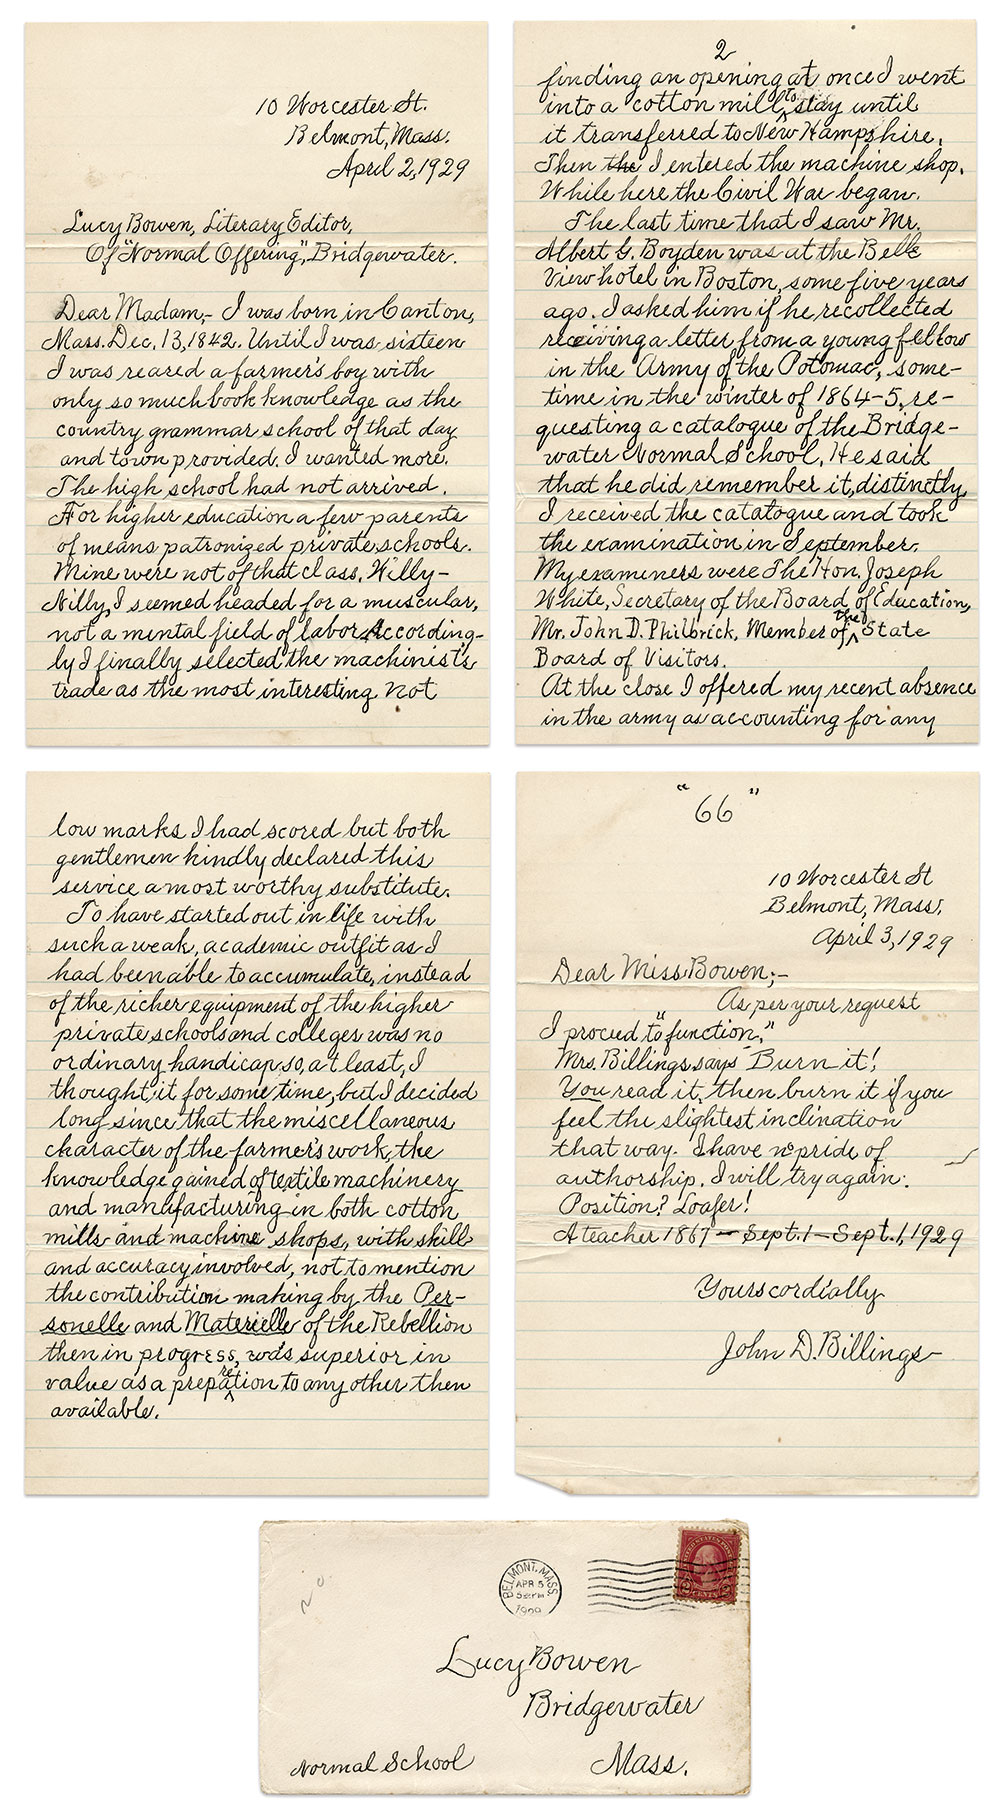 10 Worcester St.
Belmont, Mass.
April 2, 1929
Lucy Bowen, Literary Editor,
Of "Normal Offering", Bridgewater.
Dear Madam,- I was born in Canton,
Mass. Dec. 13, 1842. Until I was sixteen
I was reared a farmer's boy with
only so much book knowledge as the
country grammar school of that day
and town provided. I wanted more.
The high school had not arrived.
For higher education a few parents
of means patronized private schools.
Mine were not of that class. Willy-
Nilly, I seemed headed for a muscular,
not a mental field of labor. According-
ly I finally selected the machinist's
trade as the most interesting. Not
2
finding an opening at once I went
into a cotton mill to stay until
it transferred to New Hampshire.
Then the I entered the machine shop.
While here the Civil War began.
The last time that I saw Mr.
Albert G. Boyden was at the Belle
View hotel in Boston, some five years
ago. I asked him if he recollected
receiving a letter from a young fellow
in the Army of the Potomac, some-
time in the winter of 1864-5, re-
questing a catalogue of the Bridge-
water Normal School. He said
that he did remember it, distinctly.
I received the catalogue and took
the examination in September.
My examiners were The Hon. Joseph
White, Secretary of the Board of Education,
Mr. John D. Philbrick, Member of the State
Board of Visitors.
At the close I offered my recent absence
in the army as accounting for any
low marks I had scored but both
gentlemen kindly declared this
service a most worthy substitute.
To have started out in life with
such a weak, academic outfit as I
had been able to accumulate, instead
of the richer equipment of the higher
private schools and colleges was no
ordinary handicap, so, at least, I
thought it for some time, but I decided
long since that the miscellaneous
character of the farmer's work, the
knowledge gained of textile machinery
and manufacturing in both cotton
mills and machine shops, with skill
and accuracy involved, not to mention
the contribution making by the Per-
sonelle and Materielle of the Rebellion
then in progress, was superior in
value as a preparation to any other then
available.
"66"
10 Worcester St
Belmont, Mass.
April 3, 1929
Dear Miss Bowen;-
As per your request
I procued to "function."
Mrs. Billings says "Burn it!
You read it, then burn it if you
feel the slightest inclination
that way. I have no pride of
authorship. I will try again.
Position? Loafer!
A teacher 1867 - Sept. 1 - Sept. 1, 1929
Yours cordially
John D. Billings-
BELMONT, MASS.
APR 5
2 CENTS 2
Lucy Bowen
Bridgewater
Normal School
Mass.